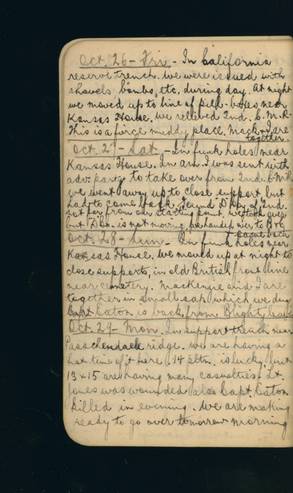 Oct. 26 - Fri - In California
reserve trench. We were issued with
shovels, bombs, etc. during day. At night
we moved up to line of pill-boxes near
Kansas House. We relieved 2nd. C.M.R.
This is a fierce muddy place. Mack & I are
together.
Oct. 27 - Sat. - In funk holes near
Kansas House. In aft. I was sent with
adv. party to take over from 2nd. C.M.R.
We went away up to close support but
had to come back. Found D Coy of 2nd.
not far from our starting point,
but Div. is not moving
came back
Oct. 28 - Sun. - In funk holes near
Kansas House. We moved up at night to
close supports, in old British front line
near cemetery. Mackenzie and I are
together in small sap which we dug
Capt. Eaton is back from Blighty leave
Oct. 29 - Mon. In support trench near
Passchendaele ridge. We are having a
hot time of it here. 14 pltn. is lucky but
13 & 15 are having many casualties. Lt.
Jones was wounded also Capt. Eaton
killed in evening. We are making
ready to go over tomorrow morning